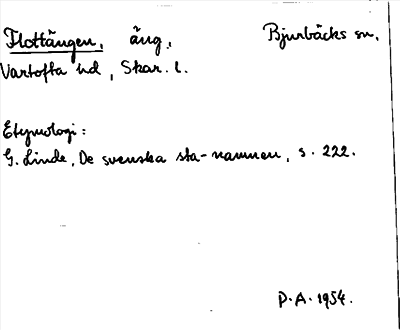 Flottängen, äng, Bjurbäcks sn,
Vartofta hd, Skar. l.
Etymologi:
G. Linde, De svenska sta-namnen, s. 222.
P.A. 1954.